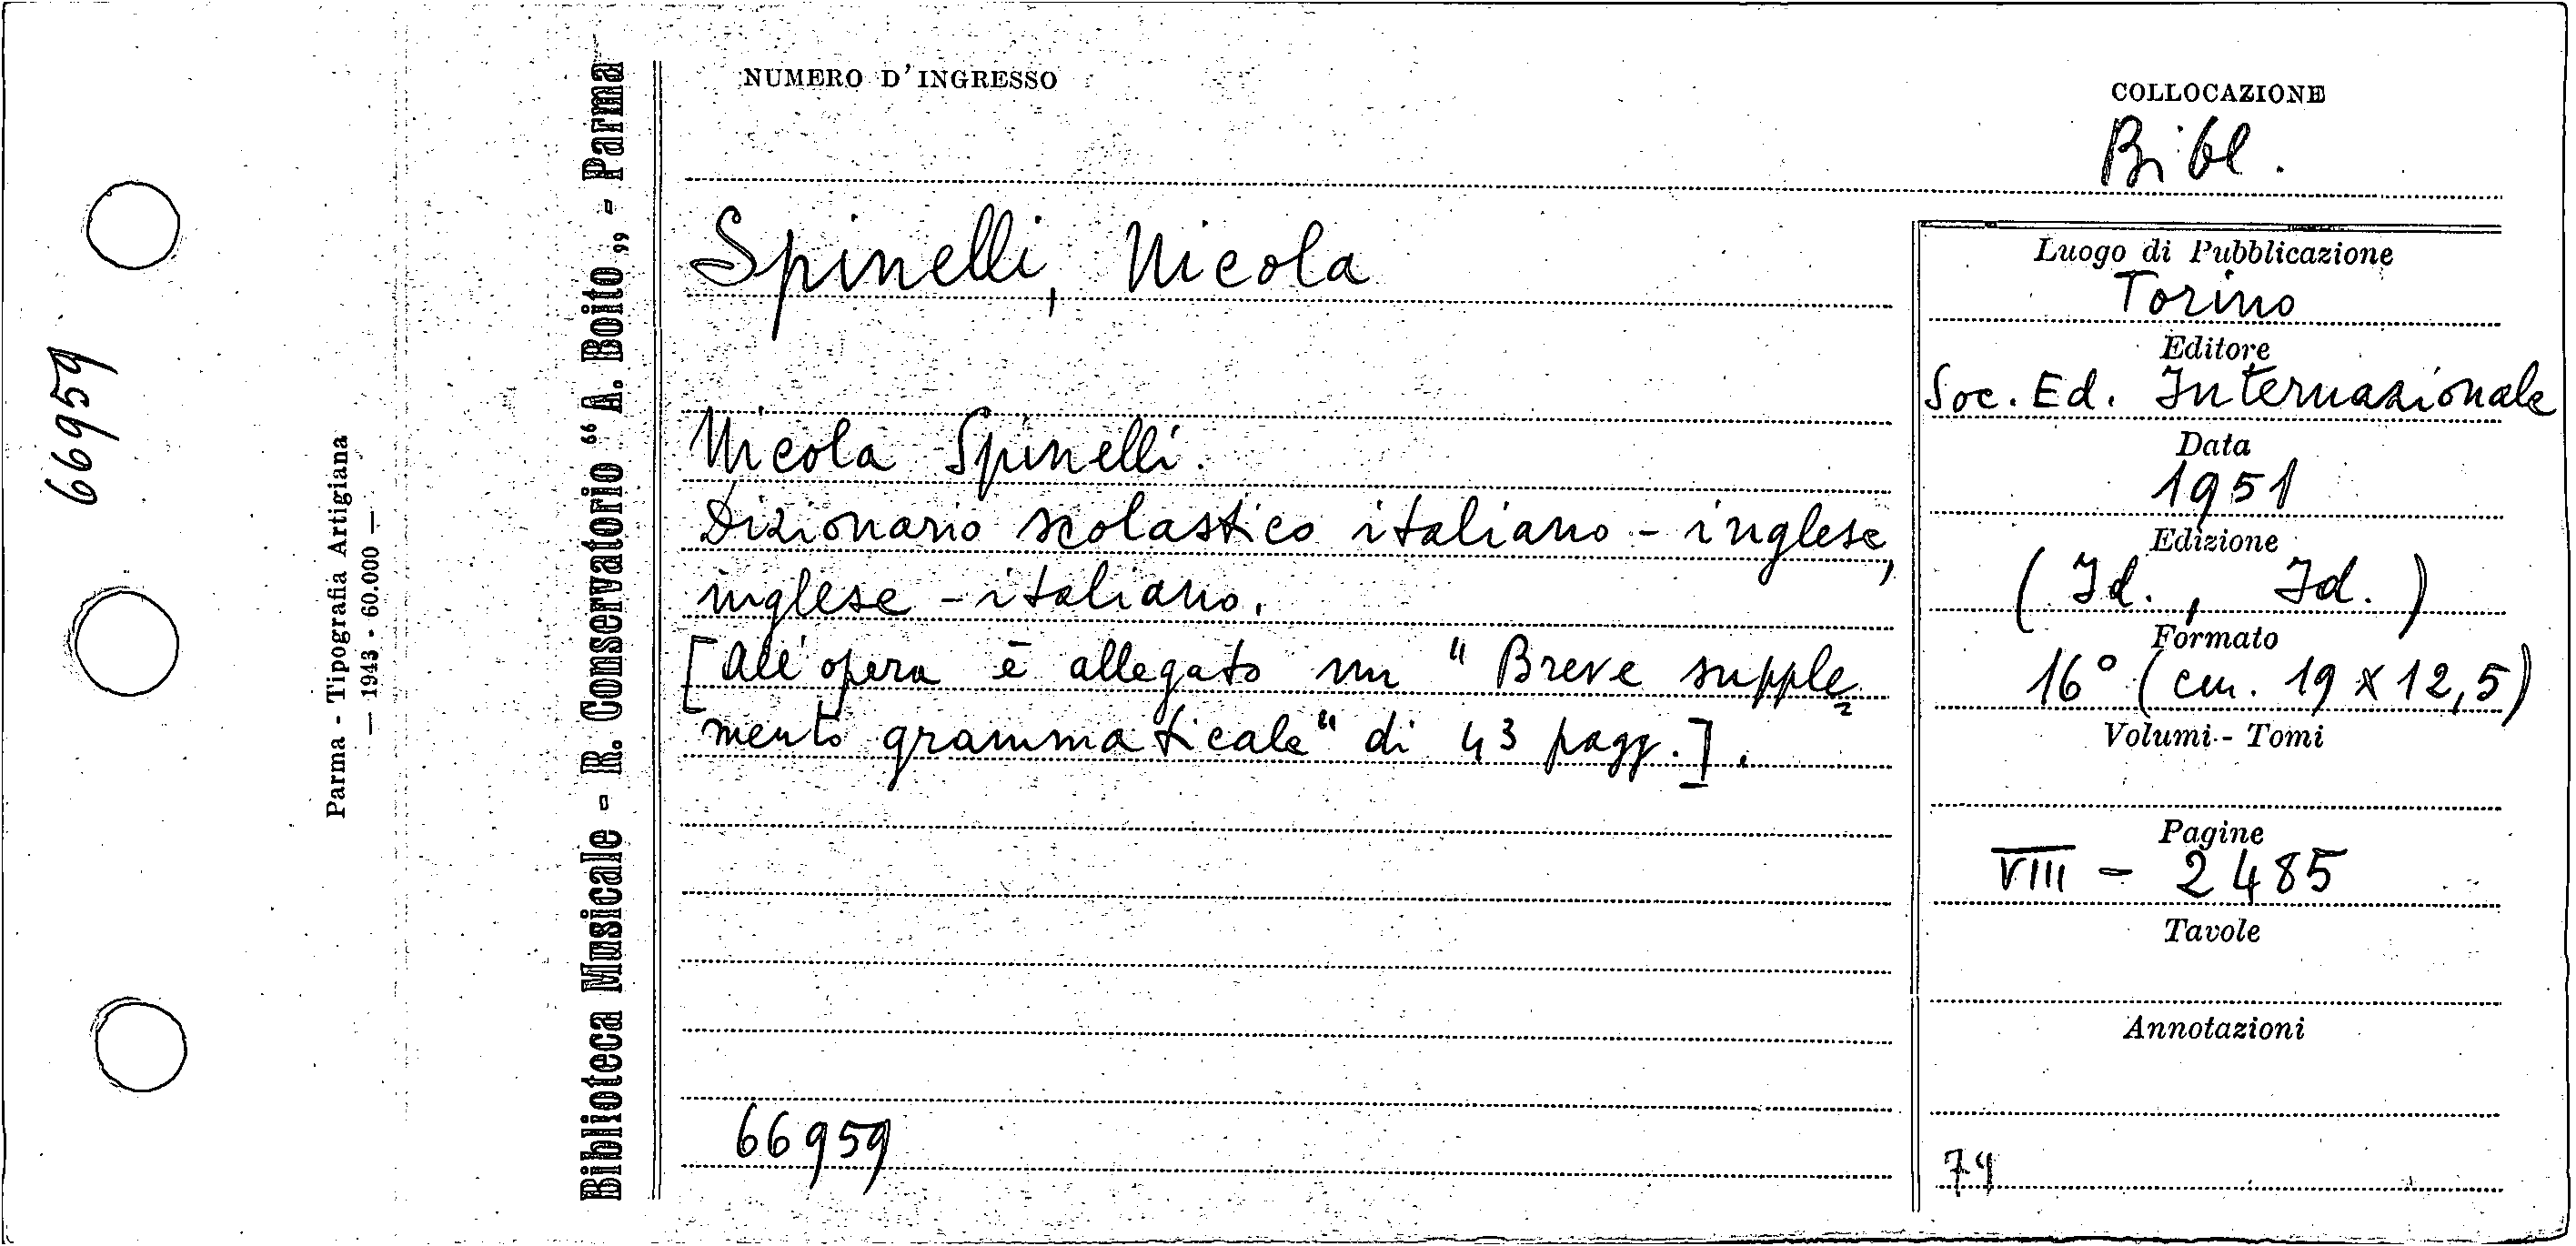 66959
Parma - Tipografia Artigiana
— 1943 - 60.000 —
Biblioteca Musicale - R. Conservatorio “A. Boito„ - Parma
NUMERO D'INGRESSO
COLLOCAZIONE
Bibl.
Spinelli, Nicola
Nicola Spinelli.
Dizionario scolastico italiano - inglese,
inglese - italiano.
[All'opera è allegato un "Breve supple=
mento grammaticale" di 43 pagg.].
66959
Luogo di Pubblicazione
Torino
Editore
Soc. Ed. Internazionale
Data
1951
Edizione
(Id., Id.)
Formato
16° (cm. 19 x 12,5)
Volumi - Tomi
Pagine
VIII - 2485
Tavole
Annotazioni